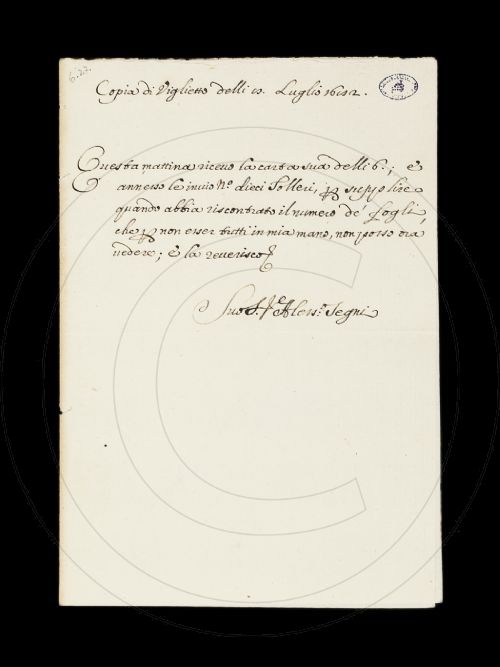 6.22.
Copia di Viglietto delli Luglio
Questa mattina ricevo la carta sua delli 6.; è
annesso le invio N.º dieci Tolleri, p supplire
quando abbia riscontrato il numero de' fogli,
che p non esser tutti in mia mano, non posso ora
vedere; è la reverisco
Suo Aless.º Segni